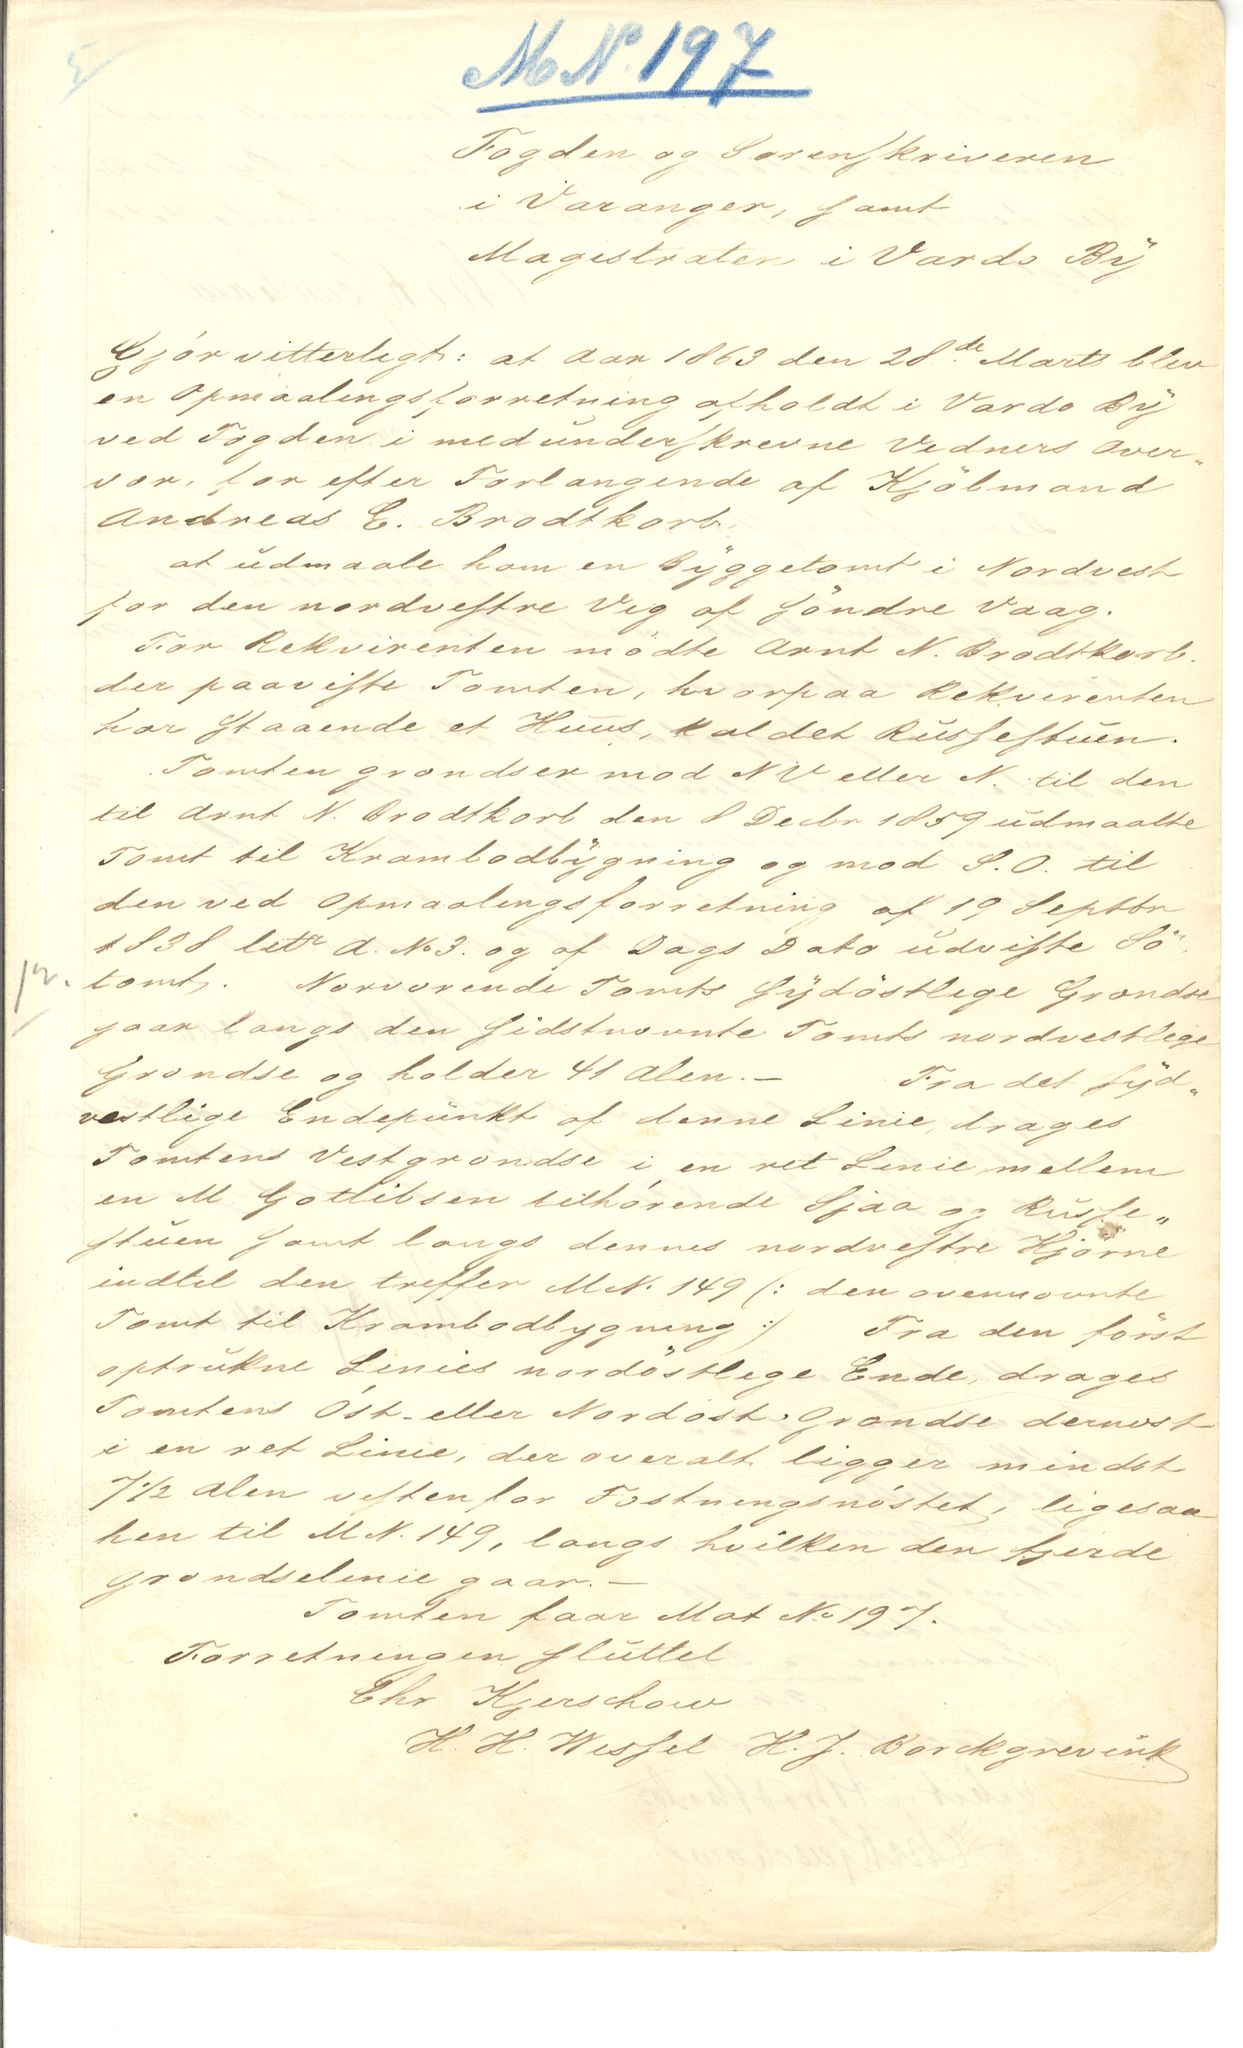 5
M N° 197
Fogden og Sorenskriveren
i Varanger, samt
Magistraten i Vardø Bÿ
Gjör vitterligt: at Aar 1863 den 28de Marts blev
en Opmaalingsforretning afholdt i Vardø Bÿ
ved Fogden i medünderskrevne Vidners Over„
vær, for efter Forlangende af Kjöbmand
Andreas E. Brodtkorb,
at üdmaale ham en Bÿggetomt i Nordvest
for den nordvestre Vig af söndre Vaag.
For Rekvirenten mödte Arnt N. Brodtkorb.
der paaviste Tomten, hvorpaa Rekvirenten
har staaende et Huus, kaldet Rüssestüen.
Tomten grændser mod NV eller N. til den
til Arnt N. Brodtkorb den 8 Decbr 1859 üdmaalte
Tomt til Krambodbÿgning og mod S.O. til
den ved Opmaalingsforretning af 19 Septbr
1838 litr A. No 3. og af Dags Dato üdviste Sö„
tomt. Nærværende Tomts sÿdöstlige Grændse
gaar langs den sidstnævnte Tomts nordvestlige
Grændse og holder 41 Alen. — Fra det sÿd„
vestlige Endepünkt af denne Linie, drages
Tomtens Vestgrændse i en ret Linie mellem
en M. Gotlibsen tilhörende Sjaa og Rüsse„
stüen samt langs dennes nordvestre Hjörne
indtil den treffer M N. 149 (: den ovennævnte
Tomt til Krambodbygning :) Fra den först
optrükne Linies nordöstlige Ende, drages
Tomtens Öst- eller Nordost-Grændse dernæst
i en ret Linie, der overalt ligger mindst
7½ Alen vestenfor Töstningsnöstet, ligesaa
hen til M N. 149, langs hvilken den fjerde
Grændselinie gaar. —
Tomten faar Mat No 197.
Forretningen slüttet
Chr Kjerschow
H. H. Wessel H. J. Borckgrevink